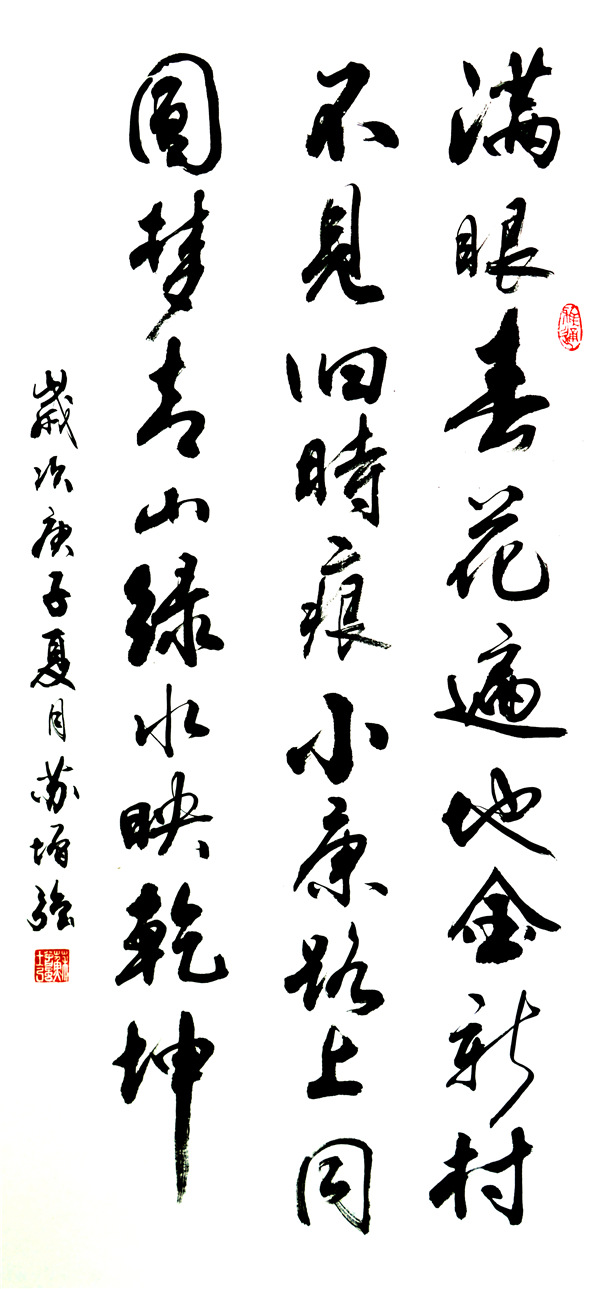 满眼春花遍地金新村
不見旧時痕小康路上同
圆梦青山绿水映乾坤
歲次庚子夏月苏增強